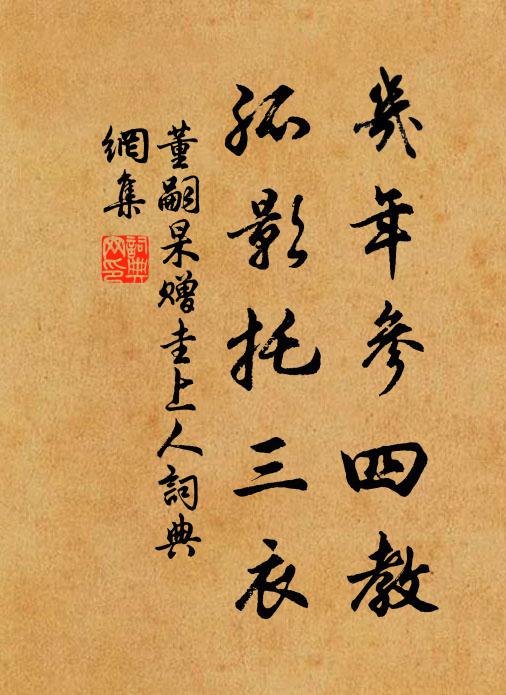 幾年參四教
孤影托三衣
董嗣杲贈圭上人詞典
網集
詞典
网印